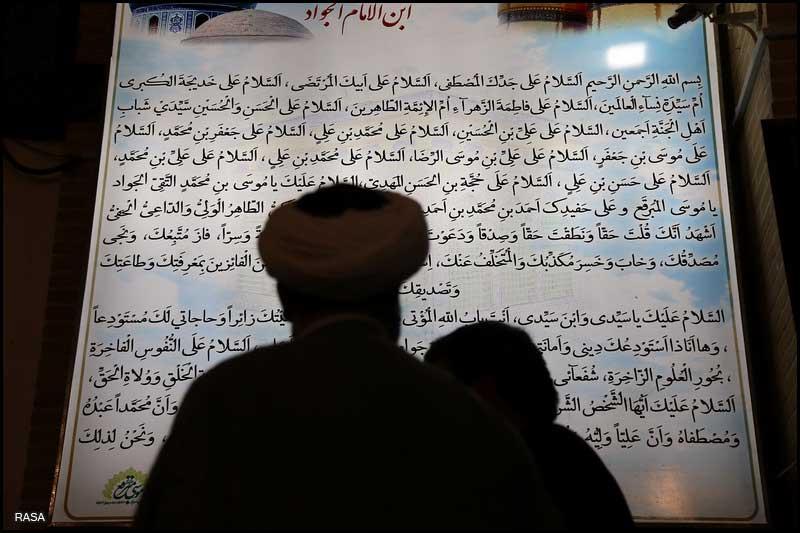 ابن الامام الجواد
بِسمِ اللهِ الرَّحمنِ الرَّحیمِ اَلسَّلامُ عَلی جَدِّكَ المُصطَفی، اَلسَّلامُ عَلی اَبیكَ المُرتَضی ، اَلسَّلامُ عَلی خَدیجَةَ الكُبری
اُمِّ سَیِّدَةِ نِسآءِ العالَمینَ، اَلسَّلامُ عَلی فاطِمَةَ الزَّهرآءِ اُمِّ الاَئِمَّةِ الطّاهِرینَ، اَلسَّلامُ عَلَی الحَسَنِ وَالحُسَینِ سَیِّدَي شَبابِ
اَهلِ الجَنَّةِ اَجمَعین، السَّلامُ عَلی عَلِيِّ بنِ الحُسَینِ، اَلسَّلامُ عَلی مُحَمَّدِ بنِ عَلِيٍ، اَلسَّلامُ عَلی جَعفَرِ بنِ مُحَمَّدٍ، اَلسَّلامُ
عَلی مُوسَی بنِ جَعفَرٍ، اَلسَّلامُ عَلی عَلِيِّ بنِ مُوسَی الرِّضا، اَلسَّلامُ عَلی مُحَمَّدِ بنِ عَلِي، اَلسَّلامُ عَلی عَلِيِّ بنِ مُحَمَّدٍ،
اَلسَّلامُ عَلی حَسَنِ بنِ عَلِي، اَلسَّلامُ عَلی حُجَّةِ بنِ الحَسَنِ المَهدِيِّ، السَّلامُ عَلَیكَ یا مُوسَی بنَ مُحَمَّدٍ التَّقِيِّ الجَواد
یا مُوسَی المُبَرقَعِ وَ عَلی حَفیدِكَ اَحمَدَ بنِ مُحَمَّدِ بنِ اَحمَدَ الطّاهِرُ الوَلِيُّ وَالدّاعِيُ الحَفِيُّ
اَشهَدُ اَنَّكَ قُلتَ حَقّاً وَنَطَقتَ حَقّاً وَصِدقاً وَدَعَوتَ وَسِرّاً، فازَ مُتَّبِعُكَ، وَنَجی
مُصَدِّقُكَ، وَخابَ وَخَسِرَ مُكَذِّبُكَ وَالمُتَخَلِّفُ عَنكَ، الفائِزینَ بِمَعرِفَتِكَ وَطاعَتِكَ
وَتَصدیقِكَ
السَّلامُ عَلَیكَ یا سَیِّدی وَابنَ سَیِّدی، اَنتَ بابُ اللهِ المُؤتی زائِراً وَحاجاتي لَكَ مُستَودِعاً
، وَها اَنَاذا اَستَودِعُكَ دینی وَاَمانَتی اَلسَّلامُ عَلَی النُّفُوسِ الفاخِرَةِ
، بُحُورِ العُلُومِ الزّاخِرَةِ، شُفَعائی الخَلقِ وَوُلاةِ الحَقِّ،
السَّلامُ عَلَیكَ اَیُّهَا الشَّخصُ وَاَنَّ مُحَمَّداً عَبدُهُ
وَمُصطَفاهُ وَاَنَّ عَلِیّاً وَلِیُّهُ ، وَنَحنُ لِذلِكَ
RASA